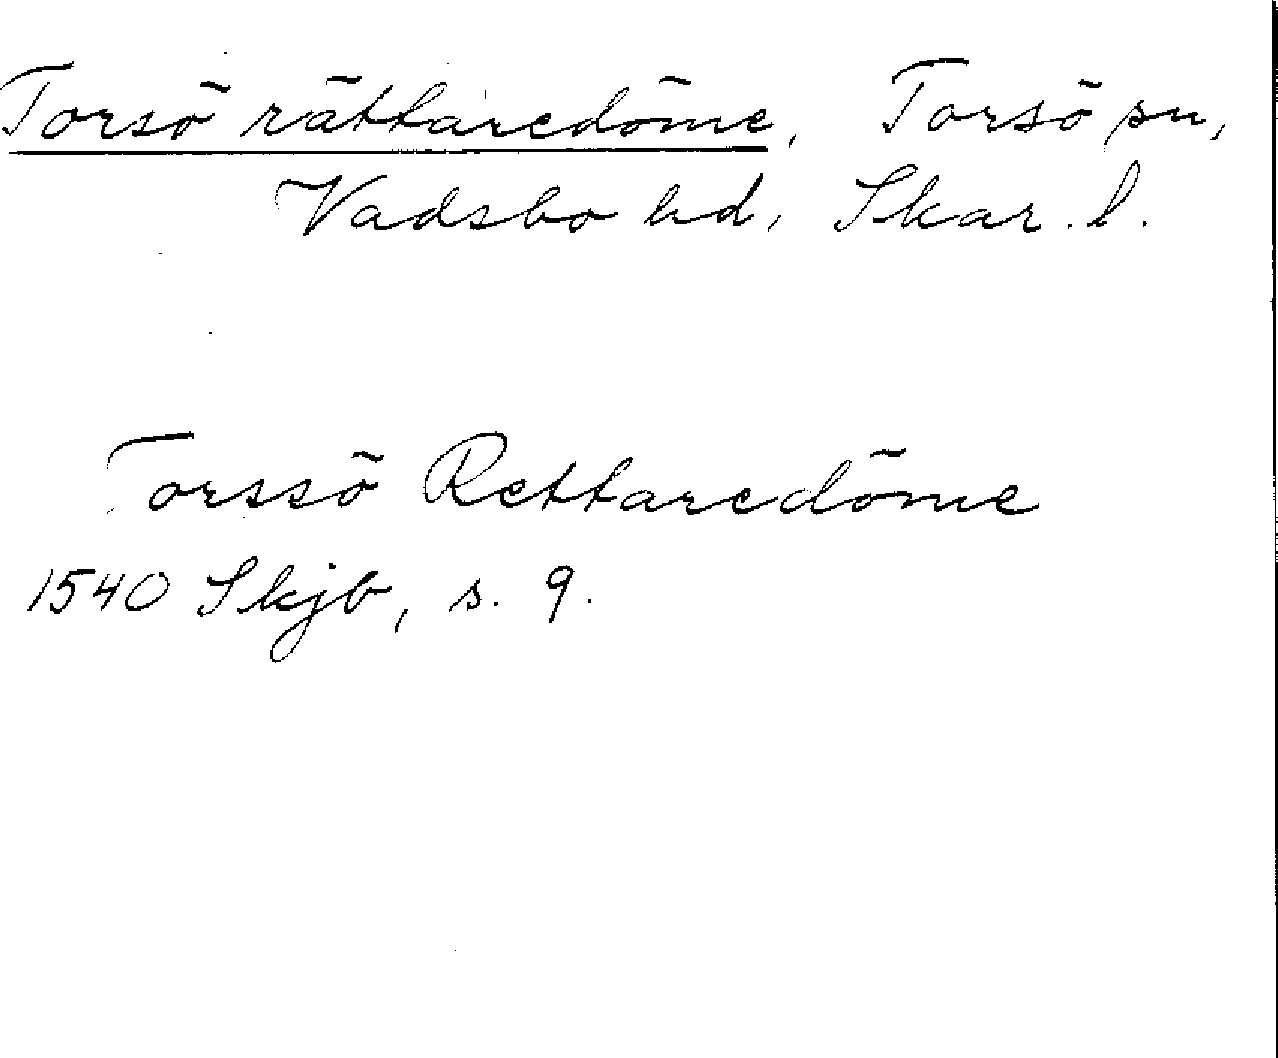 Torsö rättaredöme, Torsö sn,
Vadsbo hd, Skar. l.
Torssö Rettaredöme
1540 Skjb, s. 9.